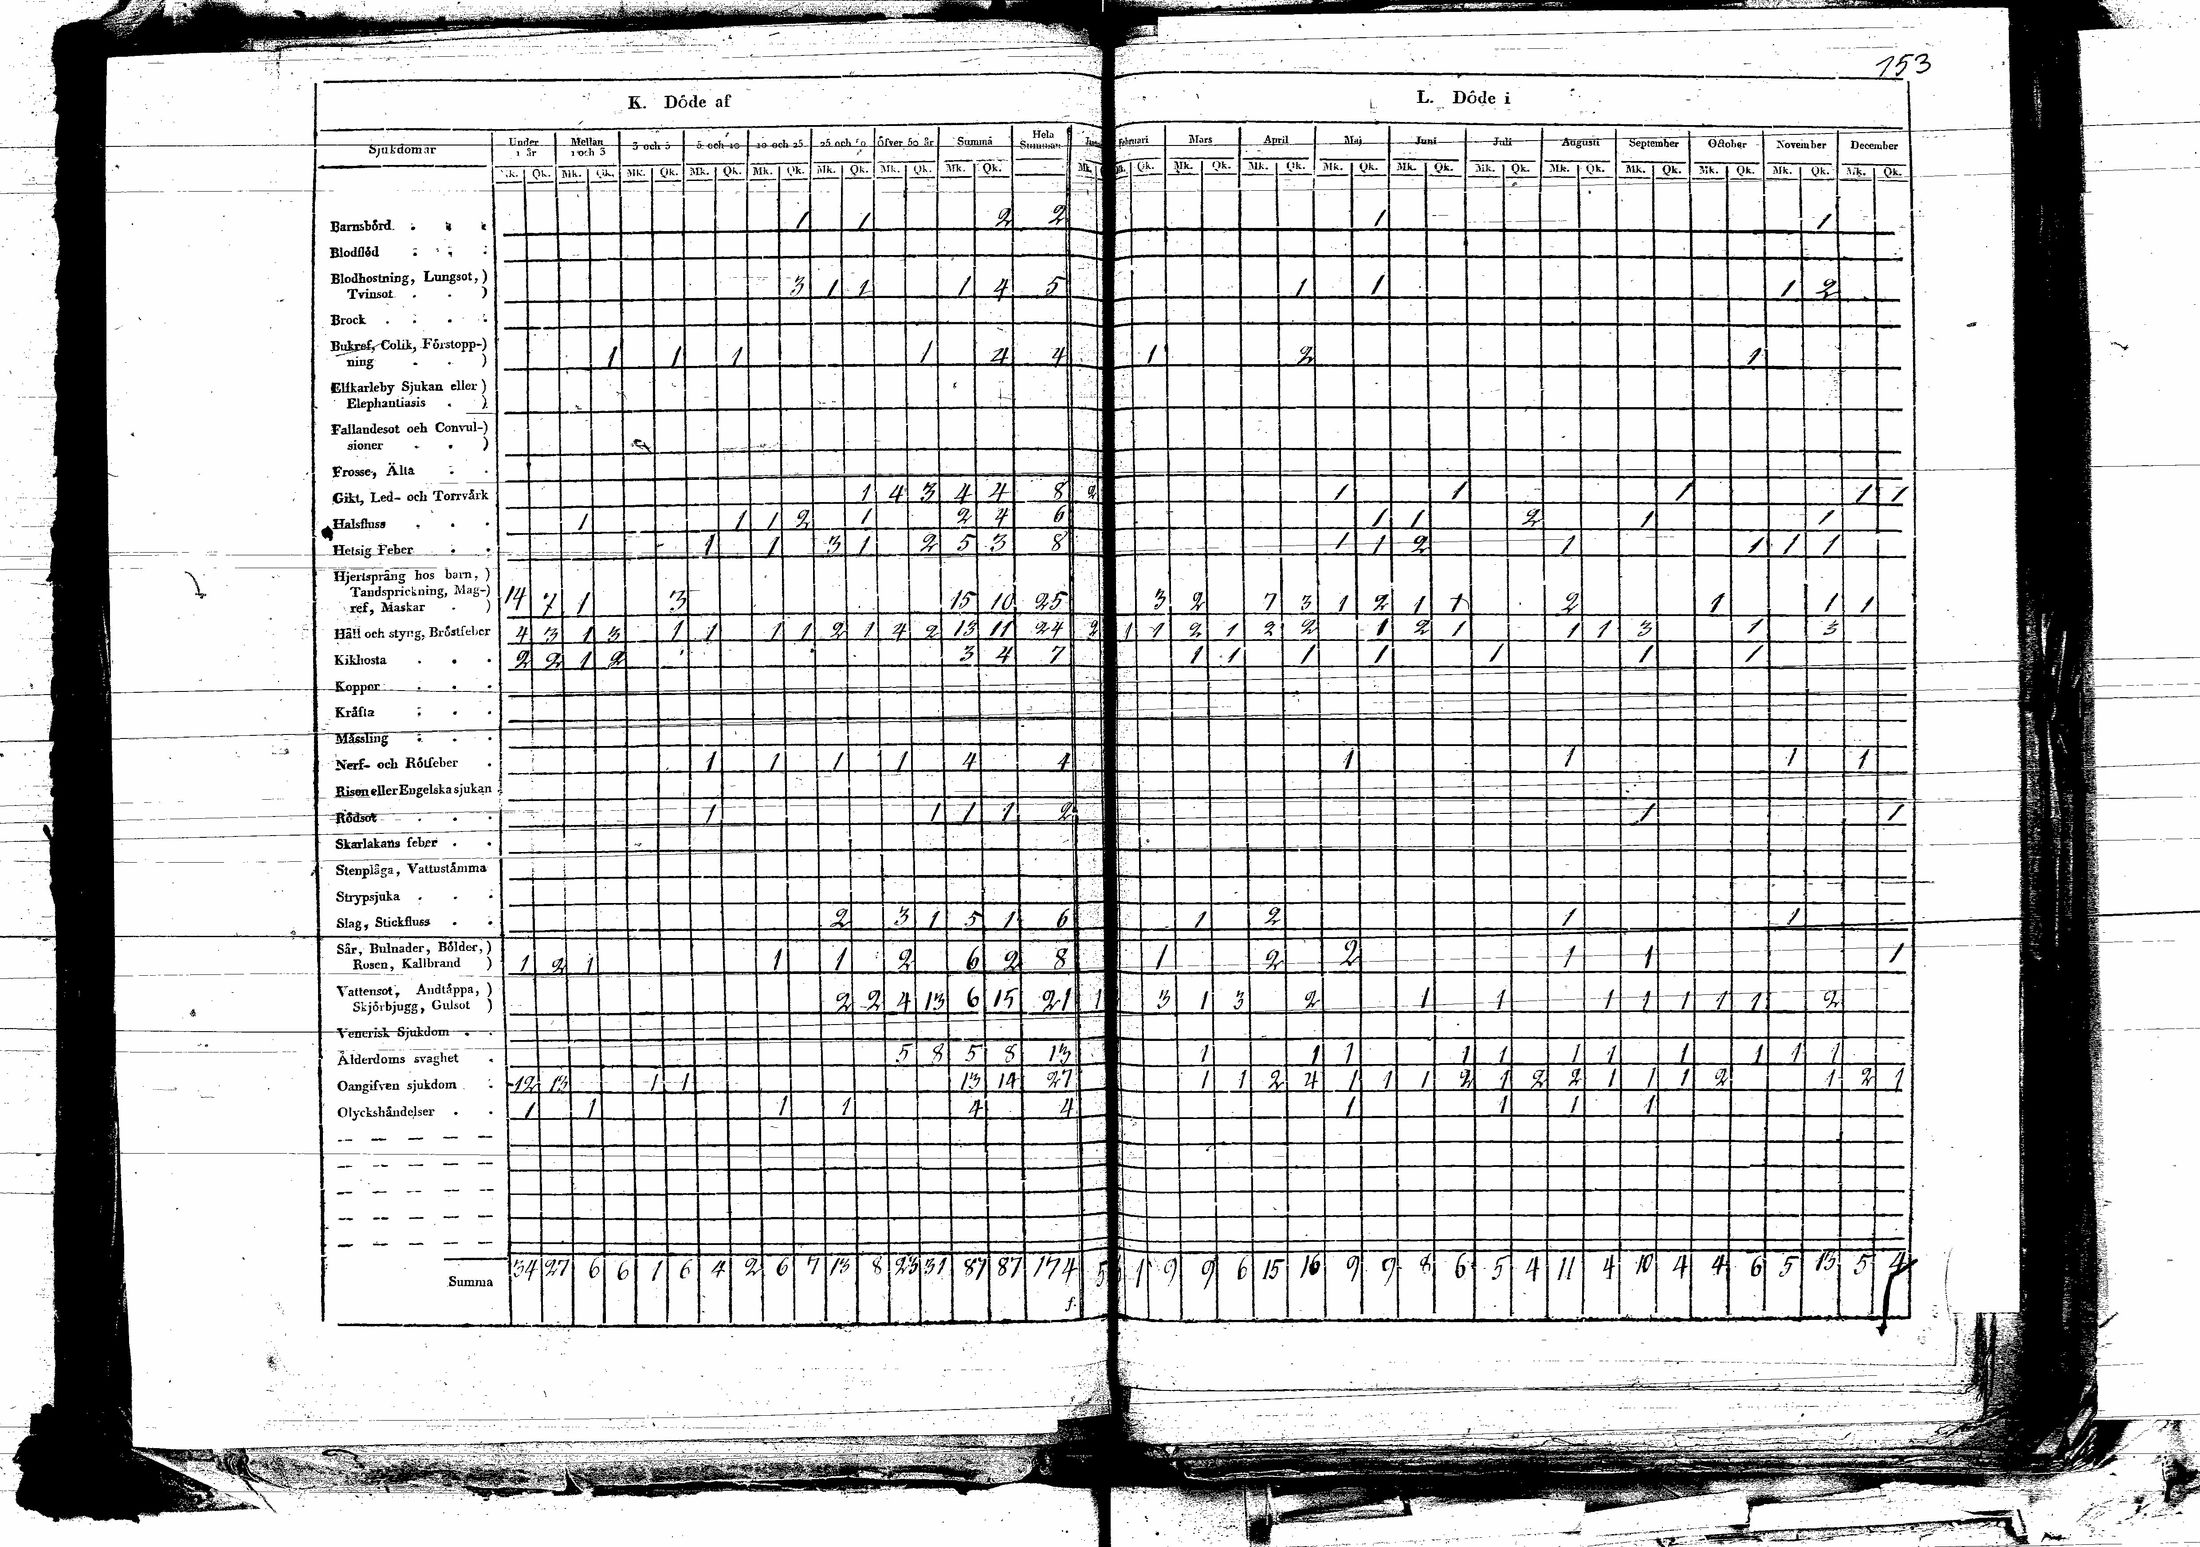 153
K. Döde af
L. Döde i
Sjukdomar Under 1 år Mellan 1 och 3 3 och 5 5 och 10 10 och 25 25 och 50 Öfver 50 år Summa Hela Summan
Februari Mars April Maj Juni Juli Augusti September October November December
Mk. Qk. Mk. Qk. Mk. Qk. Mk. Qk. Mk. Qk. Mk. Qk. Mk. Qk. Mk. Qk. Mk.
Qk. Mk. Qk. Mk. Qk. Mk. Qk. Mk. Qk. Mk. Qk. Mk. Qk. Mk. Qk. Mk. Qk. Mk. Qk. Mk. Qk.
Barnsbörd 1 1 2 2 1 1
Blodflöd
Blodhostning, Lungsot,)
Tvinsot ) 3 1 1 1 4 5 1 1 1 2
Brock
Bukref, Colik, Förstopp-)
ning ) 1 1 1 1 4 4 1 2 1
Elfkarleby Sjukan eller )
Elephantiasis )
Fallandesot och Convul-)
sioner )
Frosse, Älta
Gikt, Led- och Torrvärk 1 4 3 4 4 8 2 1 1 1 1 1
Halsfluss 1 1 1 2 1 2 4 6 1 1 2 1 1
Hetsig Feber 1 1 3 1 2 5 3 8 1 1 2 1 1 1 1
Hjertsprång hos barn, )
Tandsprickning, Mag-)
ref, Maskar ) 14 7 1 3 15 10 25 3 2 7 3 1 2 1 1 2 1 1 1
Håll och styng, Bröstfeber 4 3 1 3 1 1 1 1 2 1 4 2 13 11 24 2 1 1 2 1 2 2 1 2 1 1 1 3 1 3
Kikhosta 2 2 1 2 3 4 7 1 1 1 1 1 1 1
Koppor
Kräfta
Mässling
Nerf- och Rötfeber 1 1 1 1 4 4 1 1 1 1
Risen eller Engelska sjukan
Rödsot 1 1 1 1 2 1 1
Skarlakans feber
Stenplåga, Vattustämma
Strypsjuka
Slag, Stickfluss 2 3 1 5 1 6 1 2 1 1
Sår, Bulnader, Bölder,)
Rosen, Kallbrand ) 1 2 1 1 1 2 6 2 8 1 2 2 1 1 1
Vattensot, Andtäppa, )
Skjörbjugg, Gulsot ) 2 2 4 13 6 15 21 1 3 1 3 2 1 1 1 1 1 1 1 2
Venerisk Sjukdom
Ålderdoms svaghet 5 8 5 8 13 1 1 1 1 1 1 1 1 1 1 1
Oangifven sjukdom 12 13 1 1 13 14 27 1 1 2 4 1 1 1 2 1 2 2 1 1 1 2 1 2 1
Olyckshändelser 1 1 1 1 4 4 1 1 1 1
Summa 34 27 6 6 1 6 4 2 6 7 13 8 23 31 87 87 174 5 1 9 9 6 15 16 9 9 8 6 5 4 11 4 10 4 4 6 5 13 5 4
f.